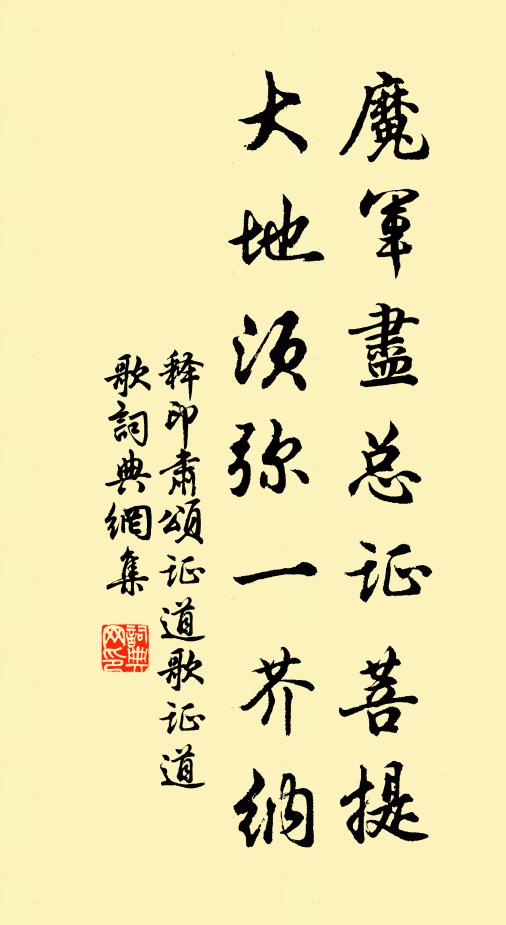 魔軍盡总证菩提
大地须弥一芥纳
释印肃颂证道歌证道
歌詞典網集
詞典
网印